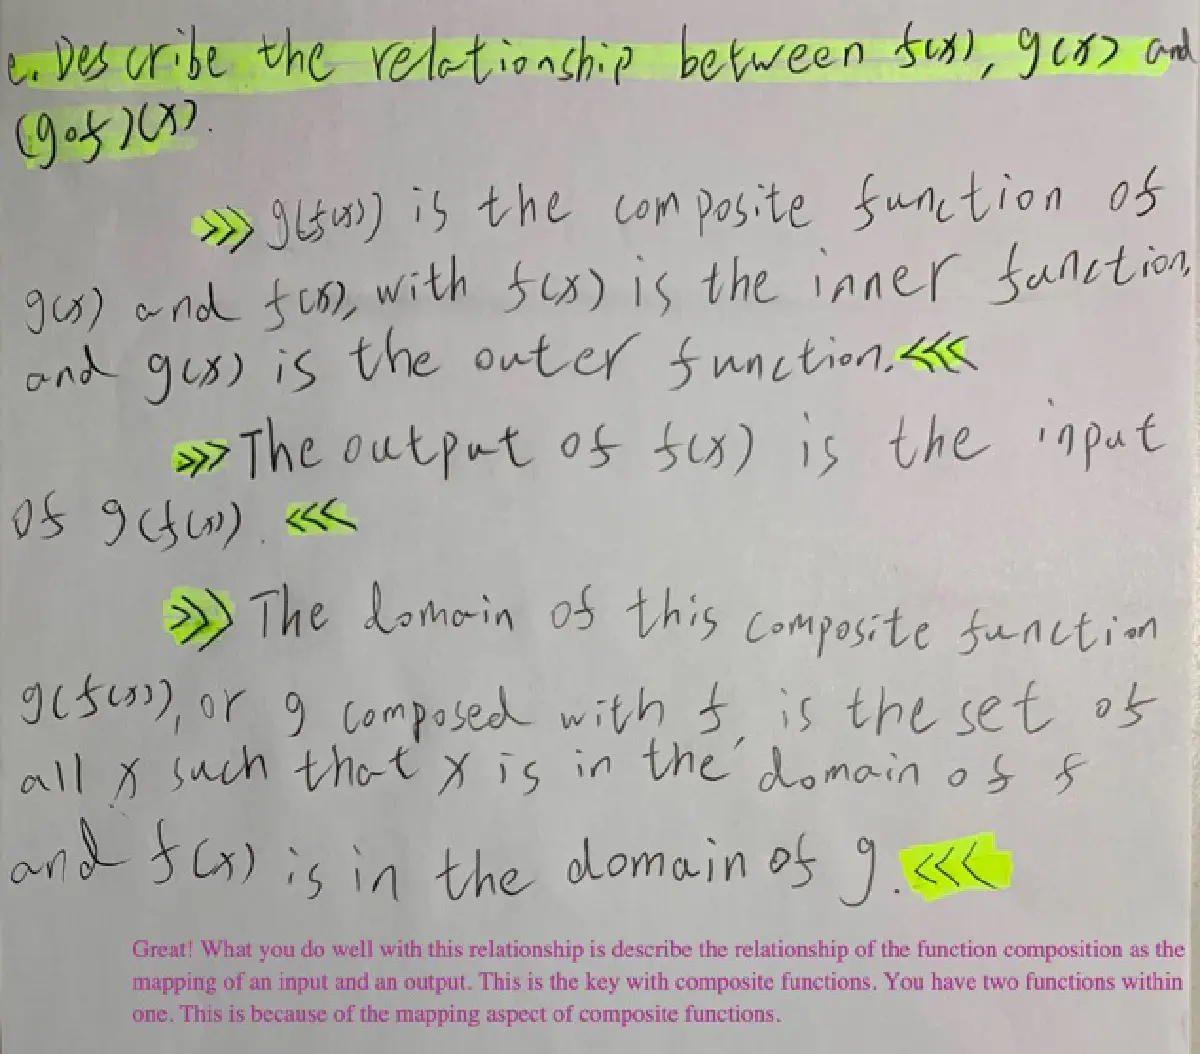 c. Describe the relationship between f(x), g(x) and
(g∘f)(x).
>>> g(f(x)) is the composite function of
g(x) and f(x), with f(x) is the inner function,
and g(x) is the outer function. <<<
>>> The output of f(x) is the input
of g(f(x)). <<<
>>> The domain of this composite function
g(f(x)), or g composed with f, is the set of
all x such that x is in the domain of f
and f(x) is in the domain of g. <<<
Great! What you do well with this relationship is describe the relationship of the function composition as the
mapping of an input and an output. This is the key with composite functions. You have two functions within
one. This is because of the mapping aspect of composite functions.